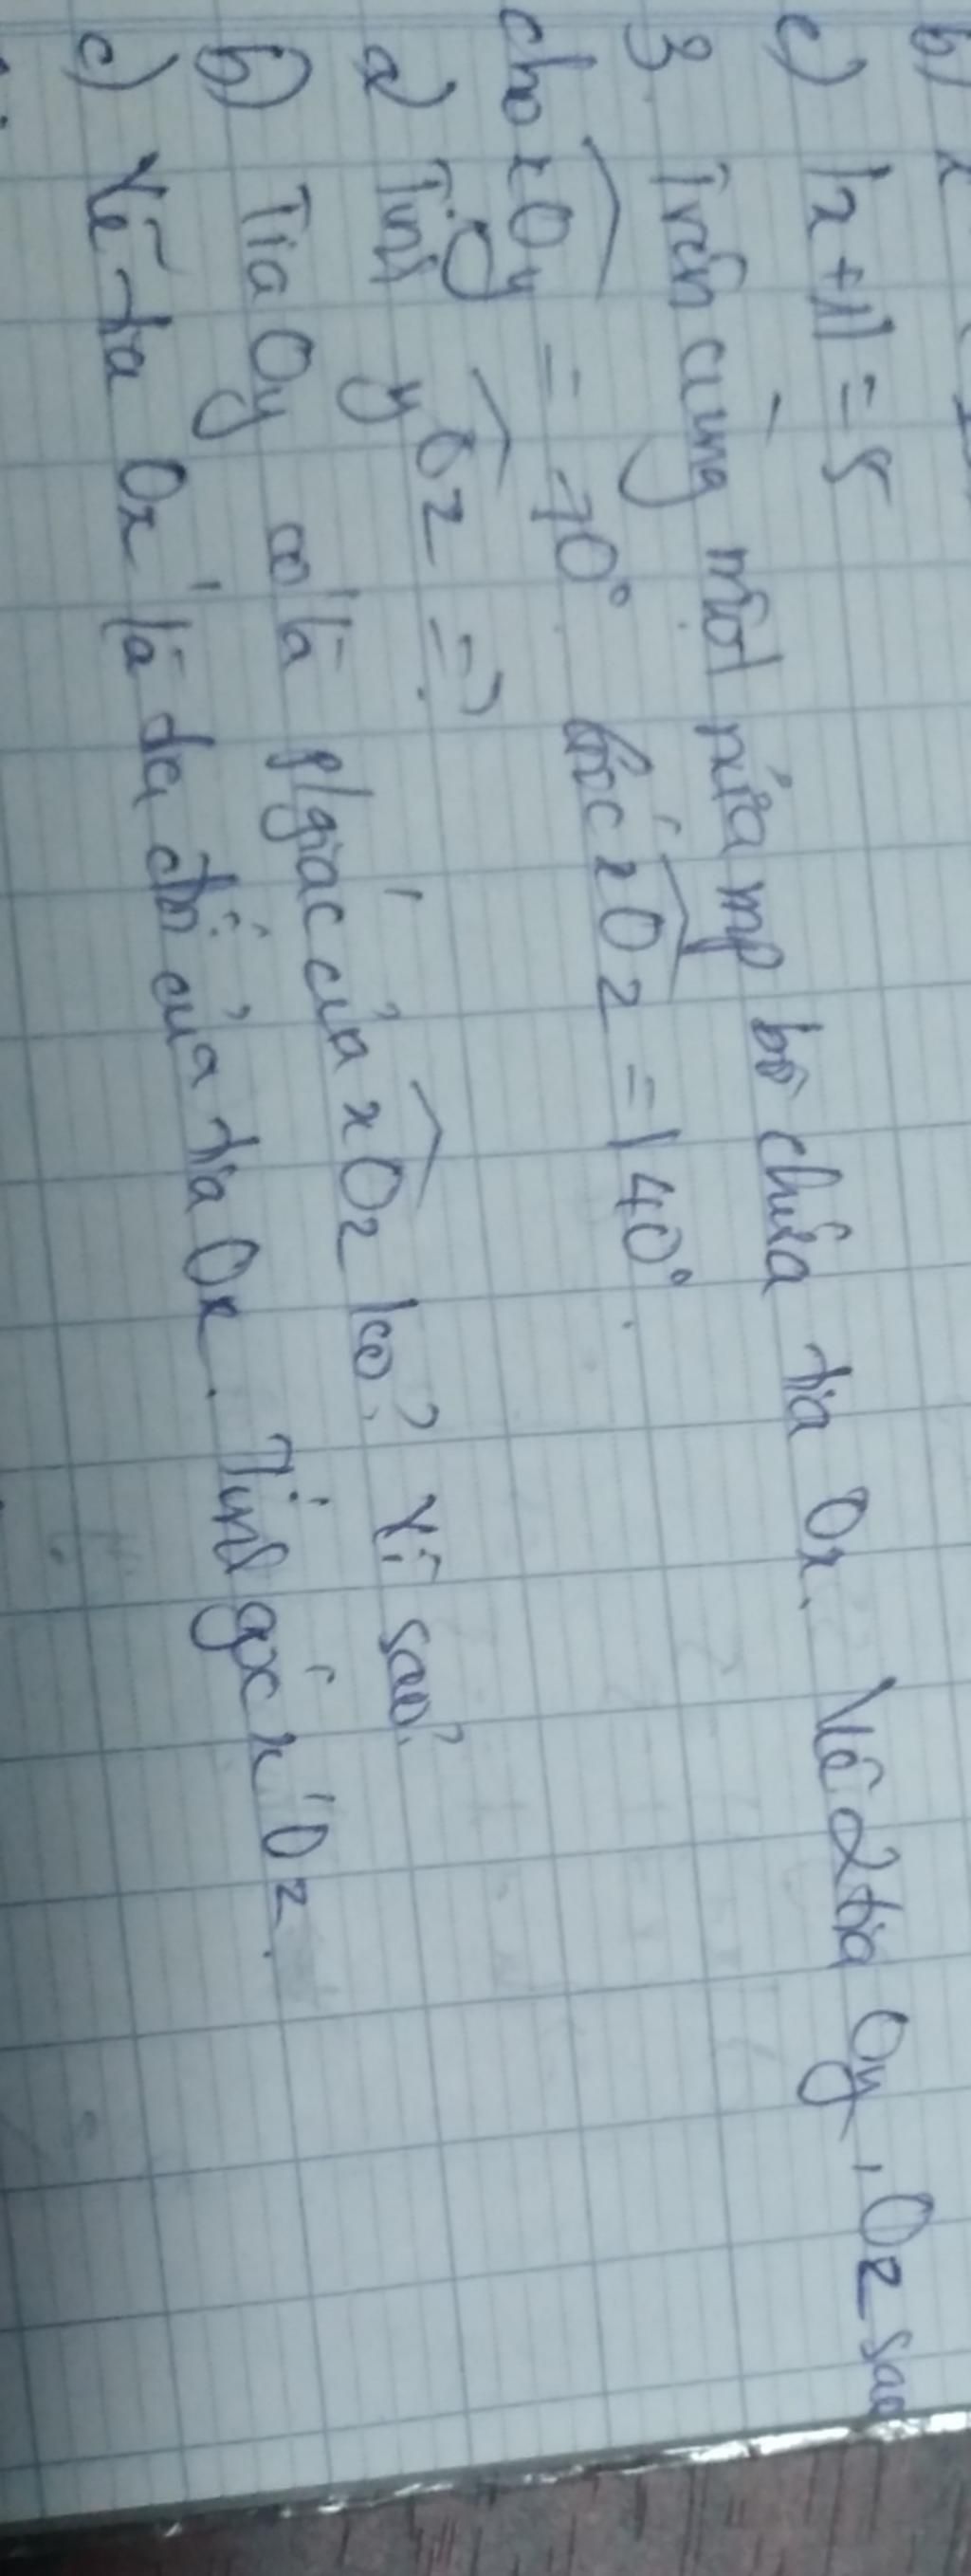 b) x
c) |x + 1| = 5
3. Trên cùng một nửa mp bờ chứa tia Ox. Vẽ 2 tia Oy, Oz sao
cho xOy = 70° góc xOz = 140°.
a) Tính yOz = ?
b) Tia Oy có là p/giác của xOz ko? Vì sao?
c) Vẽ tia Ox' là tia đối của tia Ox. Tính góc x'Oz.